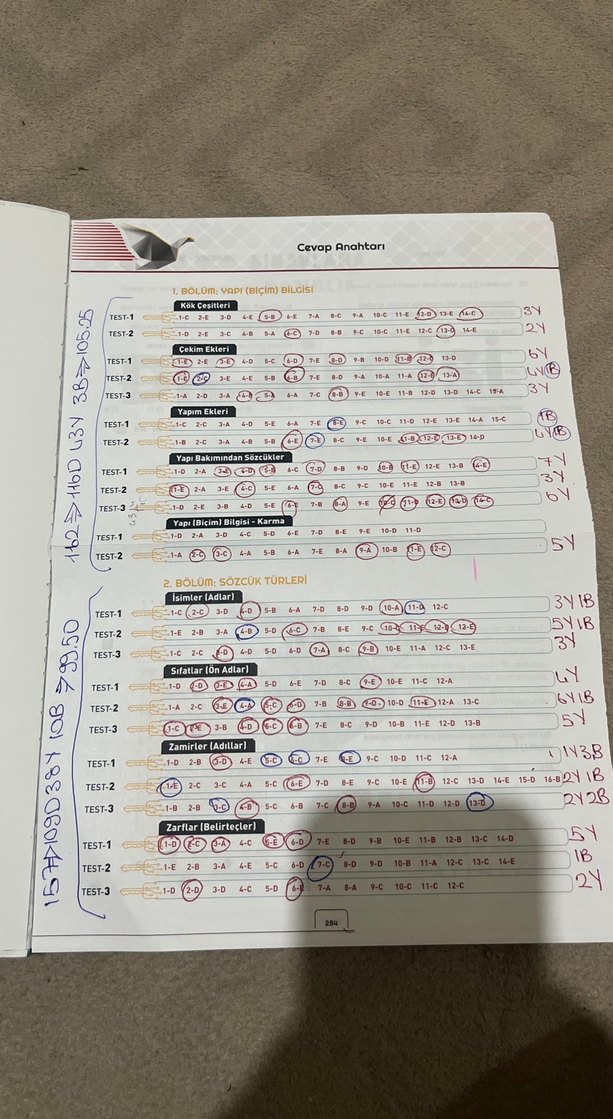 Cevap Anahtarı
1. BÖLÜM: YAPI (BİÇİM) BİLGİSİ
Kök Çeşitleri
TEST-1 1-C 2-E 3-D 4-E 5-B 6-E 7-A 8-C 9-A 10-C 11-E 12-D 13-E 14-C 3Y
TEST-2 1-D 2-E 3-C 4-B 5-A 6-C 7-D 8-B 9-C 10-C 11-E 12-C 13-C 14-E 2Y
Çekim Ekleri
TEST-1 1-E 2-E 3-E 4-D 5-C 6-D 7-E 8-D 9-B 10-D 11-B 12-C 13-D 6Y
TEST-2 1-E 2-C 3-E 4-E 5-B 6-B 7-E 8-D 9-A 10-A 11-A 12-E 13-A 4Y 1B
TEST-3 1-A 2-D 3-A 4-B 5-A 6-A 7-C 8-B 9-E 10-E 11-B 12-D 13-D 14-C 15-A 3Y
Yapım Ekleri
TEST-1 1-C 2-C 3-A 4-D 5-E 6-A 7-E 8-E 9-C 10-C 11-D 12-E 13-E 14-A 15-C 1B
TEST-2 1-B 2-C 3-A 4-B 5-B 6-E 7-E 8-C 9-E 10-E 11-B 12-E 13-E 14-D 4Y 1B
Yapı Bakımından Sözcükler
TEST-1 1-D 2-A 3-E 4-D 5-B 6-C 7-D 8-B 9-D 10-B 11-E 12-E 13-B 14-E 7Y
TEST-2 1-E 2-A 3-E 4-C 5-E 6-A 7-C 8-C 9-C 10-E 11-E 12-B 13-B 3Y
TEST-3 1-D 2-E 3-B 4-C 5-B 6-E 7-B 8-A 9-E 10-C 11-D 12-E 13-D 14-C 6Y
Yapı (Biçim) Bilgisi - Karma
TEST-1 1-D 2-A 3-D 4-C 5-D 6-E 7-D 8-E 9-E 10-D 11-D
TEST-2 1-A 2-C 3-C 4-B 5-B 6-A 7-E 8-A 9-A 10-B 11-E 12-C 5Y
162⇒116D 43Y 3B⇒105.25
2. BÖLÜM: SÖZCÜK TÜRLERİ
İsimler (Adlar)
TEST-1 1-C 2-C 3-D 4-D 5-B 6-A 7-D 8-D 9-D 10-A 11-D 12-C 3Y 1B
TEST-2 1-E 2-B 3-A 4-B 5-D 6-C 7-B 8-E 9-C 10-C 11-E 12-B 13-E 5Y 1B
TEST-3 1-C 2-C 3-D 4-D 5-B 6-D 7-A 8-C 9-B 10-E 11-A 12-C 13-E 3Y
Sıfatlar (Ön Adlar)
TEST-1 1-D 2-D 3-E 4-A 5-D 6-E 7-D 8-C 9-E 10-E 11-C 12-A 4Y
TEST-2 1-A 2-C 3-E 4-A 5-C 6-D 7-B 8-B 9-D 10-D 11-E 12-A 13-C 6Y 1B
TEST-3 1-C 2-E 3-B 4-D 5-C 6-B 7-E 8-C 9-D 10-B 11-E 12-D 13-B 5Y
Zamirler (Adıllar)
TEST-1 1-D 2-B 3-D 4-E 5-C 6-C 7-E 8-E 9-C 10-D 11-C 12-A 1Y 3B
TEST-2 1-E 2-B 3-C 4-A 5-C 6-E 7-D 8-E 9-C 10-A 11-B 12-C 13-D 14-E 15-D 16-B 2Y 1B
TEST-3 1-B 2-B 3-C 4-B 5-C 6-B 7-C 8-B 9-A 10-C 11-D 12-D 13-D 2Y 2B
Zarflar (Belirteçler)
TEST-1 1-D 2-C 3-A 4-C 5-E 6-D 7-E 8-D 9-B 10-E 11-B 12-B 13-C 14-D 5Y
TEST-2 1-E 2-B 3-A 4-E 5-C 6-D 7-C 8-D 9-D 10-B 11-A 12-C 13-C 14-E 1B
TEST-3 1-D 2-D 3-D 4-C 5-D 6-E 7-A 8-A 9-C 10-C 11-C 12-C 2Y
157⇒109D 38Y 10B ⇒99.50
284